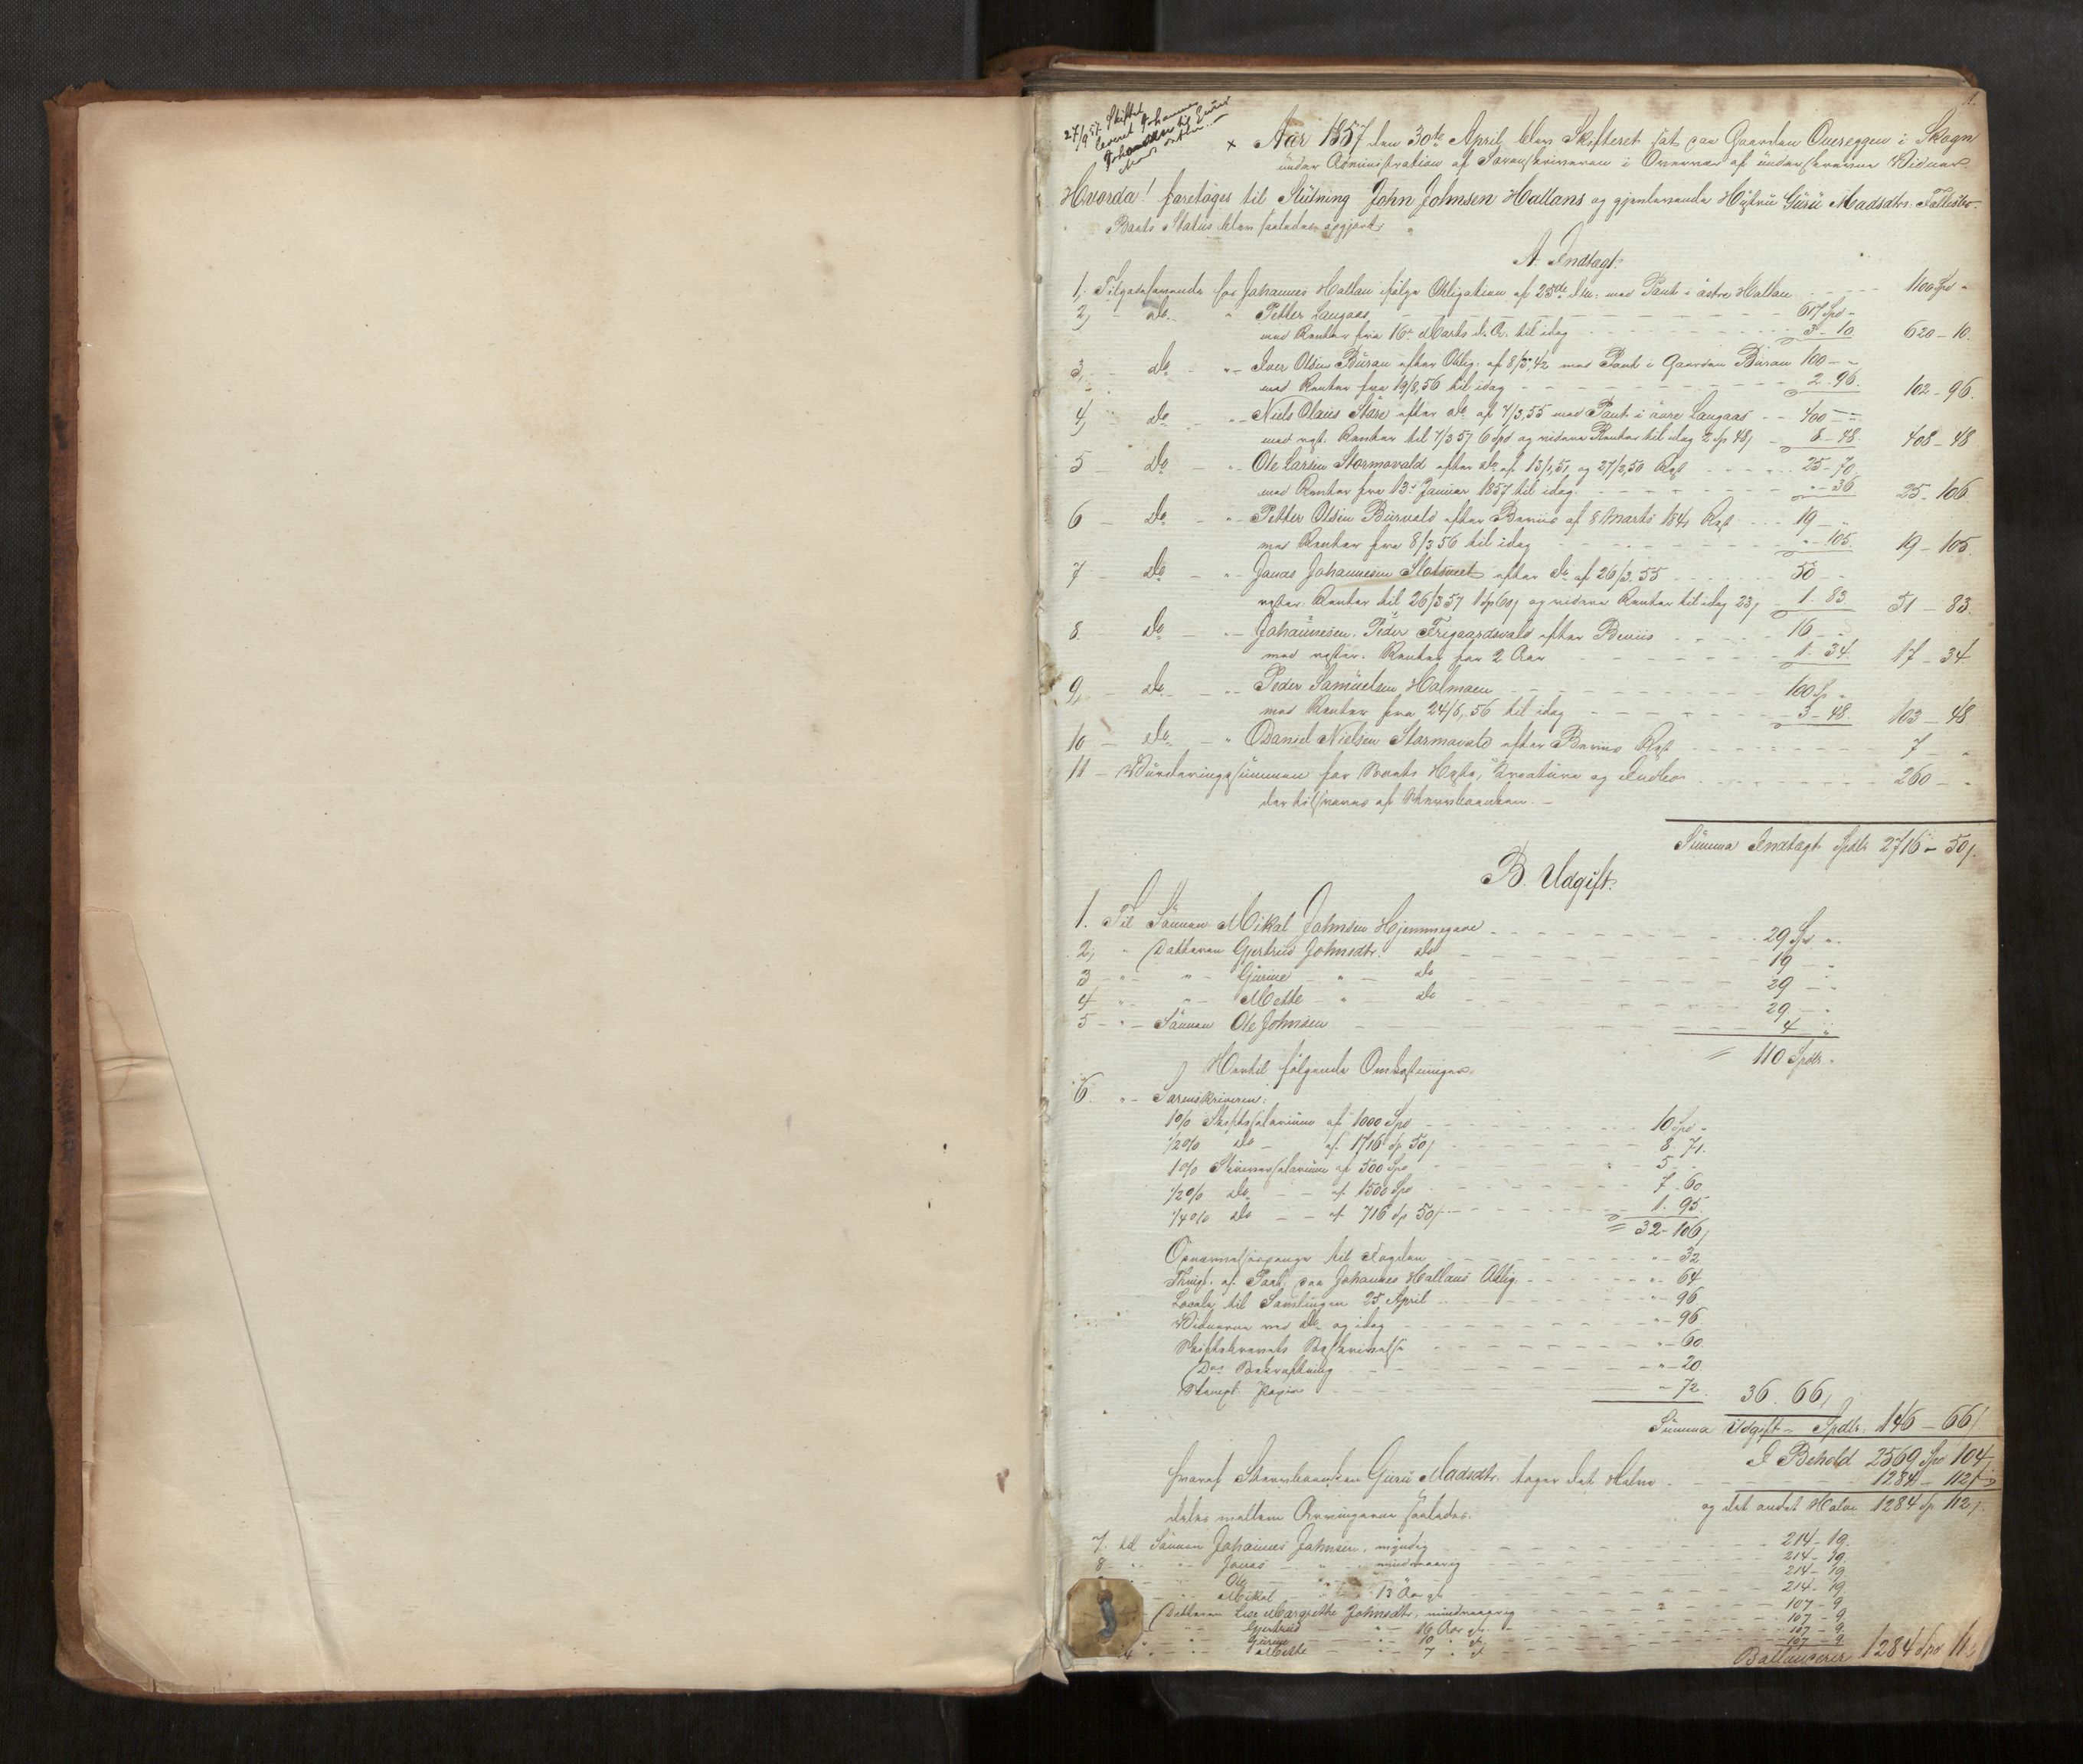 1.
27/9 57 Skiftet
leveret Johannes
Johnsen til
× Aar 1857 den 30te April blev Skifteret sat paa Gaarden Overeggen i Skogn
under Administration af Sorenskriveren i Overvær af underskrevne Vidner.
Hvorda! foretoges til Slutning John Johnsen Hallans og gjenlevende Hustru Guru Madsdtr. Fællesbo.
Boets Status blev saaledes opgjort:
A. Indtægt:
1, Tilgodehavende hos Johannes Hallan ifølge Obligation af 25de ds. med Pant i østre Hallan - - - 1100 Spd "
2, - do. - " Petter Laugaas - - - 617 Spd "
med Renter fra 16de Marts d. A. til idag - - - 3 - 10. 620 - 10.
3, - do - " - Iver Olsen Buran efter Oblig. af 8/5 42 med Pant i Gaarden Buran 100 - "
med Renter fra 19/8 56 til idag - - - 2 - 96. 102 - 96.
4, do - " - Niels Olaus Stare efter do af 7/3 55 med Pant i øvre Laugaas - - 400 - "
med rest. Renter til 7/3 57 6 Spd og videre Renter til idag 2 Sp 48 - 8 - 48 408 - 48
5 - do - " - Ole Larsen Stormovald efter do af 13/1 51 og 27/2 50 Rest - - - 25 - 70.
med Renter fra 13de Januar 1857 til idag - - - " - 36 25 - 106
6 - do - " - Petter Olsen Burvald efter Beviis af 8 Marts 184 Rest - - - 19 - "
med Renter fra 8/3 56 til idag - - - " - 105. 19 - 105.
7 - do - " - Jonas Johannesen Slotsveet efter do af 26/3 55 - - - 50 -
rester. Renter til 26/3 57 1 Sp 60 og videre Renter til idag 23 1 - 83 51 - 83.
8. do - " - Johannesen. Peder Frigaardsvald efter Beviis - - - 16 - "
med rester. Renter for 2 Aar - - - 1 - 34 17 - 34
9, - do - " - Peder Samuelsen Halmoen - - - 100 Sp "
med Renter fra 24/8 56 til idag - - - 3 - 48. 103 - 48
10 - do - " Daniel Nielsen Stormovald efter Beviis Rest - - - 7 - "
11 - Vurderingssummen for Boets Heste, Kreature og Indbo - - - 260 - "
der tilsvares af Stervboenken. -
Summa Indtægt Spdlr 2716 - 50
B. Udgift:
1. Til Sønnen Mikal Johnsen Hjemmegave - - - 29 Spd "
2, " Datteren Gjertrud Johnsdtr. do - - - 19 - "
3 - " - " - Gurine - " - do 29 - "
4, " - " - Mette - " do - - - 29 - "
5 - " - Sønnen Ole Johnsen - - - 4 - "
= 110 Spdlr "
Hertil følgende Omkostninger:
6. " - Sorenskriveren:
1% Skiftesalarium af 1000 Spd - - - 10 Spd "
1/2% do - af 1716 Sp 50 - - - 8. 71.
1% Skriversalarium af 500 Spd - - - 5 "
1/2% do - - af 1500 Spd - - - 7. 60
1/4% do - - af 716 Sp 50 - - - 1. 95.
= 32 - 106
Opnævnelsespenge til Fogden - - - " - 32
Thingl. af Pant. paa Johannes Hallans Oblig. - - - " - 64
Locale til Samlingen 25 April - - - " - 96
Vidnerne ved do og idag - - - " - 96
Skiftebrevets Beskrivelse - - - " - 60
Dets Bekræftning - - - " - 20
Stempl. Papir - - - " - 72. 36. 66
Summa Udgift - Spdlr. 146 - 66
I Behold 2569 Spd 104
hvoraf Stervboenken Guru Madsdtr. tager det Halve - 1284 - 112
og det andet Halve 1284 Sp 112
deles mellem Arvingerne saaledes:
7. til Sønnen Johannes Johnsen, myndig - - - 214 - 19.
8 " " - Jonas " - mindreaarig - - - 214 - 19
" Ole " 214 - 19
" Mikal " 13 Aar gl. 214 - 19
Datteren Lise Margrethe Johnsdtr., mindreaarig - - - 107 - 9
Gjertrud " - 16 Aar gl. - 107 - 9
" - " - Gurine " - 10 " gl. 107 - 9
4 " - " - Mette " - 7 " gl - 107 - 9
Ballancerer 1284 Spd 112